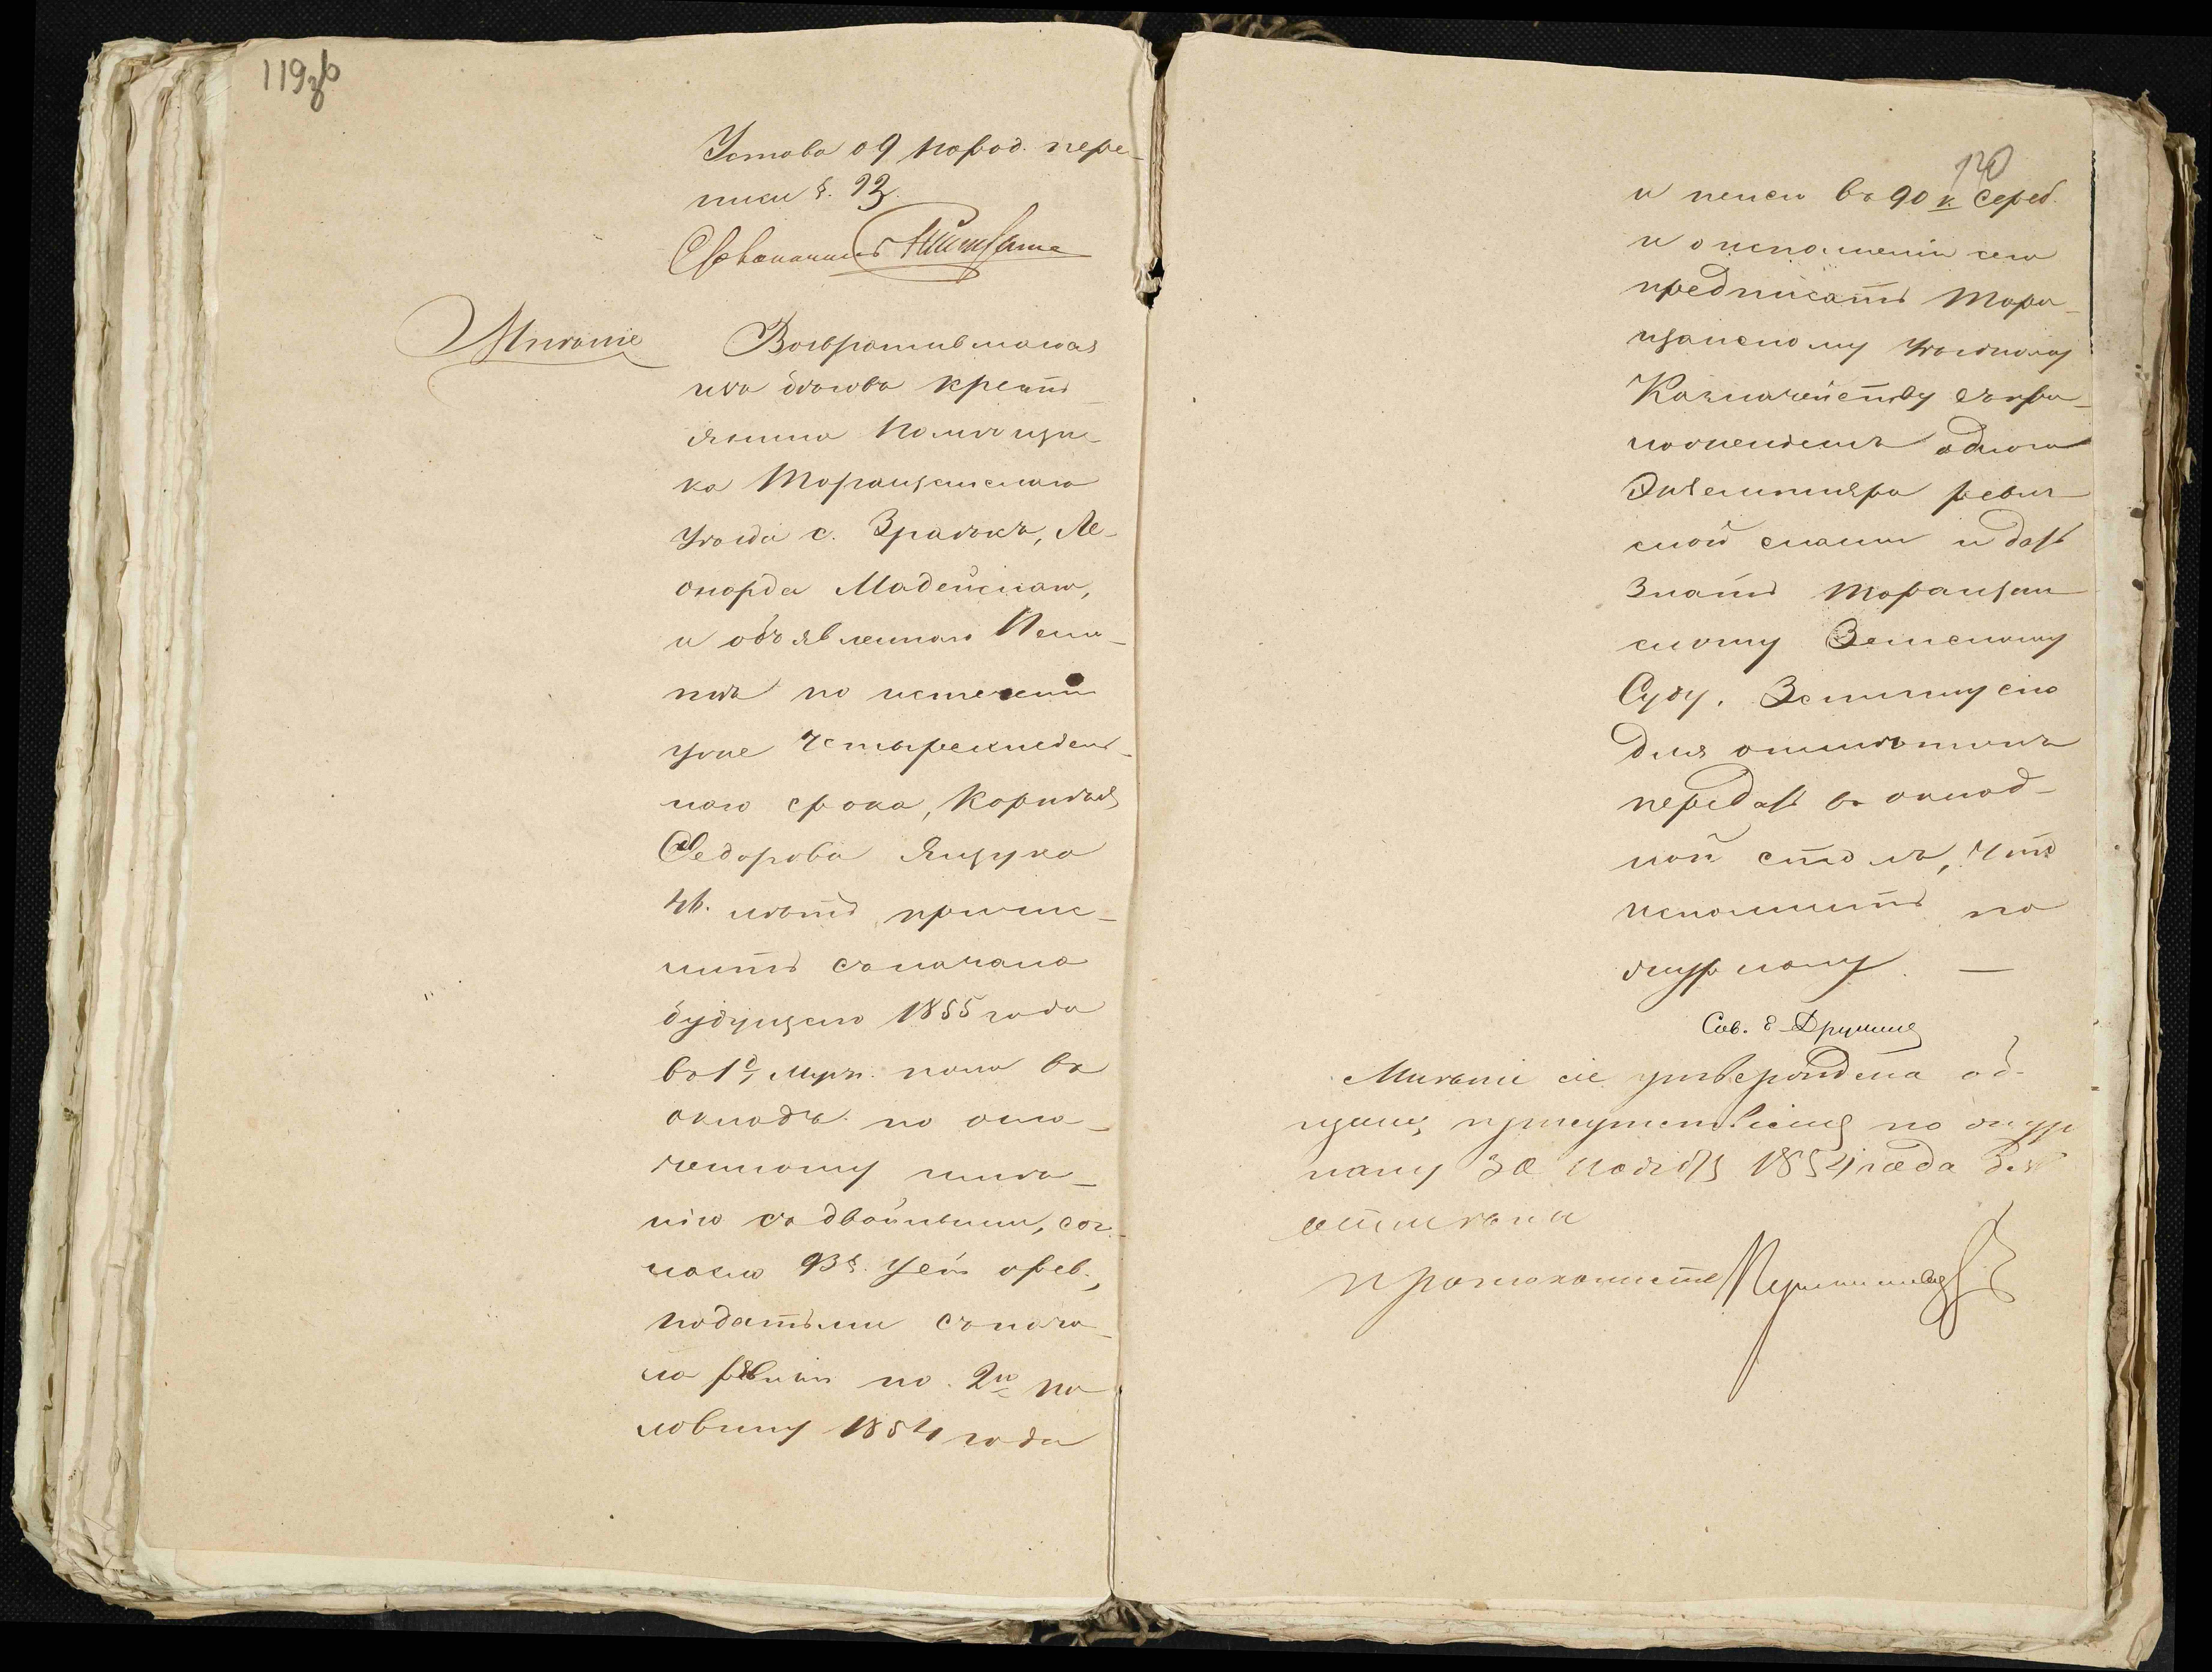 119 зв
Устава о 9 народ. пере-
писи §. 93.
Столоначальникъ
Мнѣніе
Возвратившагося
изъ бѣговъ крестъ-
янина помѣщи-
ка Таращанскаго
уѣзда с. Зрайкъ, Ле-
онарда Мадейскаго,
и объявленнаго
по истеченіи
уже четырехнедѣль-
наго срока, Корнѣя
Федорова Ящука
46. лѣтъ причис-
лить съ начала
будущаго 1855 года
въ 1. муж. пола въ
окладъ по озна-
ченному имѣ-
нію съ двойными, сог-
ласно 93 §. Уст. о рев.,
податьми съ нача-
ла ревизіи по 2ю по
ловину 1854 года
120
и пени въ 90 к. сереб.
и о исполненіи сего
предписать Тара-
щанскому Уѣздному
Казначейству съ пре-
повожденіемъ одного
Экземпляра ревиз-
ской сказки и дать
знать Таращан
скому Земскому
Суду. Записку сію
для отмѣтокъ
передать въ оклад-
ной столъ, что
исполнить по
журналу. —
Сов.
Мнѣніе сіе утверждено об-
щимъ присутствіемъ по жур
налу 30 ноября 1854 года
отмѣтка
Протоколистъ